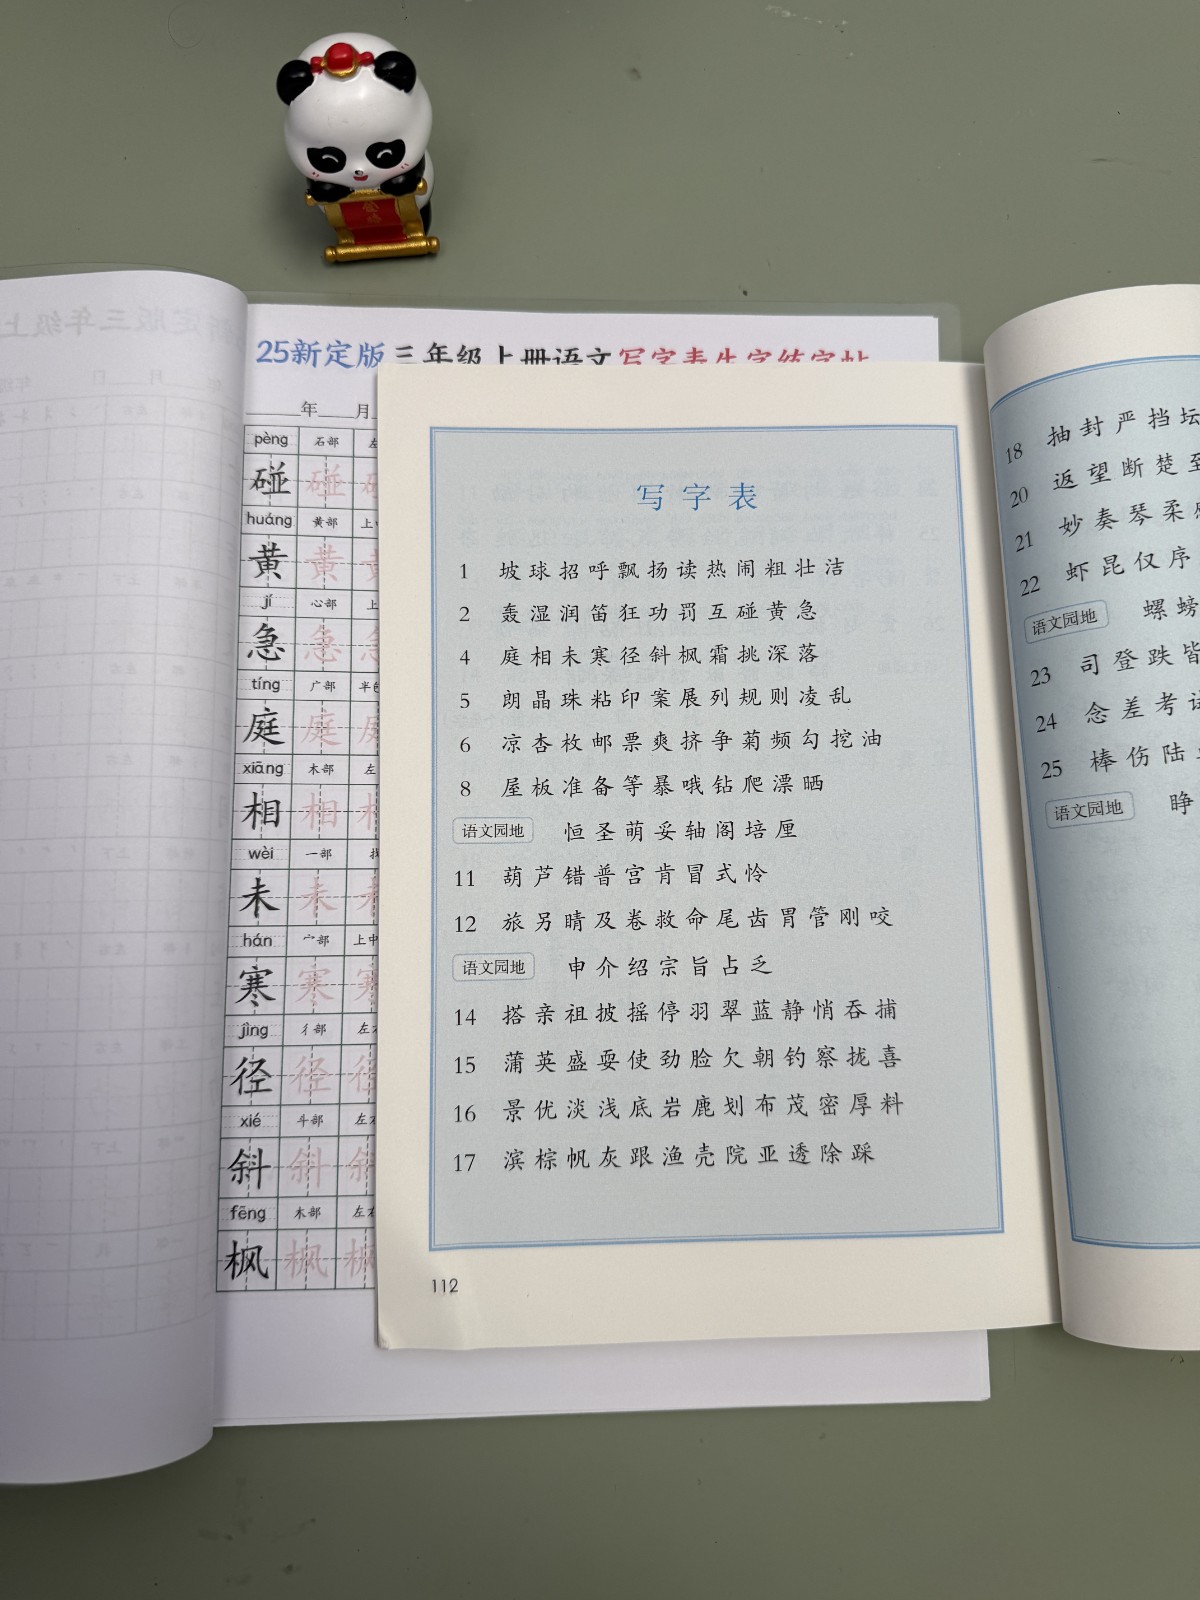 25新定版三年级上册语文写字表生字练字帖
年 月
pèng 石部
碰 碰
huáng 黄部
黄 黄
jí 心部
急 急
tíng 广部
庭 庭
xiāng 木部
相 相
wèi 一部
未 未
hán 宀部
寒 寒
jìng 彳部
径 径
xié 斗部
斜 斜
fēng 木部
枫 枫
写字表
1 坡球招呼飘扬读热闹粗壮洁
2 轰湿润笛狂功罚互碰黄急
4 庭相未寒径斜枫霜挑深落
5 朗晶珠粘印案展列规则凌乱
6 凉杏枚邮票爽挤争菊频勾挖油
8 屋板准备等暴哦钻爬漂晒
语文园地 恒圣萌妥轴阁培厘
11 葫芦错普宫肯冒式怜
12 旅另晴及卷救命尾齿胃管刚咬
语文园地 申介绍宗旨占乏
14 搭亲祖披摇停羽翠蓝静悄吞捕
15 蒲英盛耍使劲脸欠朝钓察拢喜
16 景优淡浅底岩鹿划布茂密厚料
17 滨棕帆灰跟渔壳院亚透除踩
112
18 抽封严挡坛
20 返望断楚至
21 妙奏琴柔感
22 虾昆仅序
语文园地 螺螃
23 司登跌皆
24 念差考试
25 棒伤陆
语文园地 睁